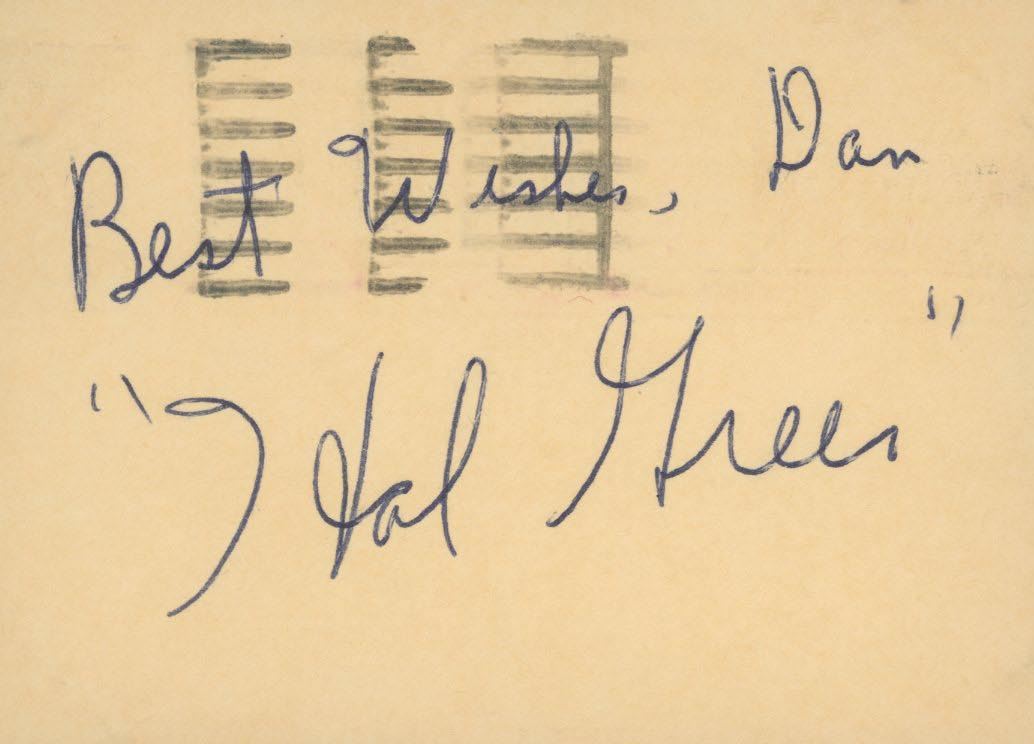 Best Wishes, Dan
"Hal Green"